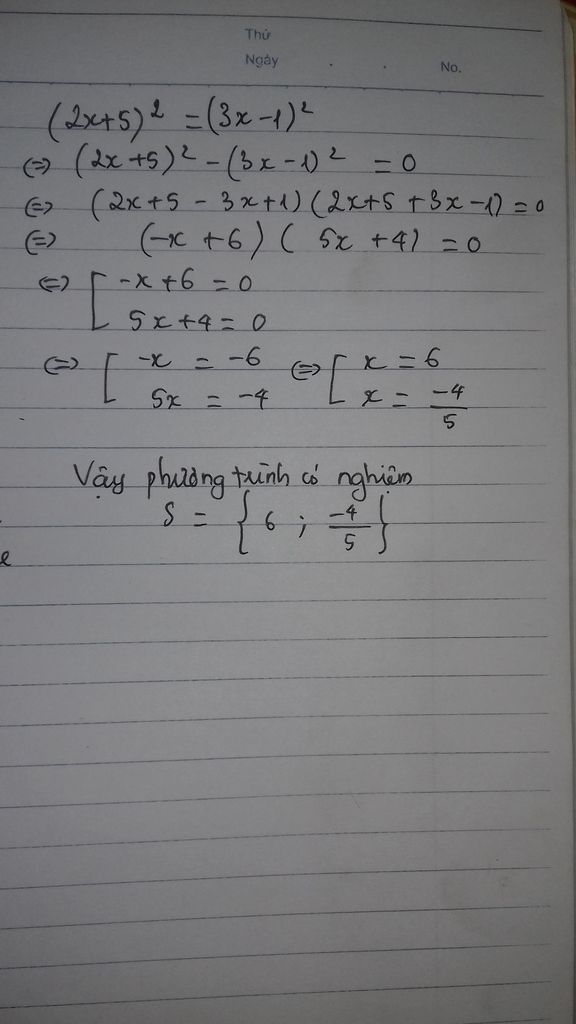 Thứ
Ngày . . No.
(2x+5)² = (3x-1)²
⇔ (2x+5)² - (3x-1)² = 0
⇔ (2x+5 - 3x+1)(2x+5 +3x-1) = 0
⇔ (-x +6) ( 5x +4) = 0
⇔ [ -x+6 = 0
5x+4 = 0
⇔ [ -x = -6 ⇔ [ x = 6
5x = -4 x = -4/5
Vậy phương trình có nghiệm
S = { 6 ; -4/5 }
e